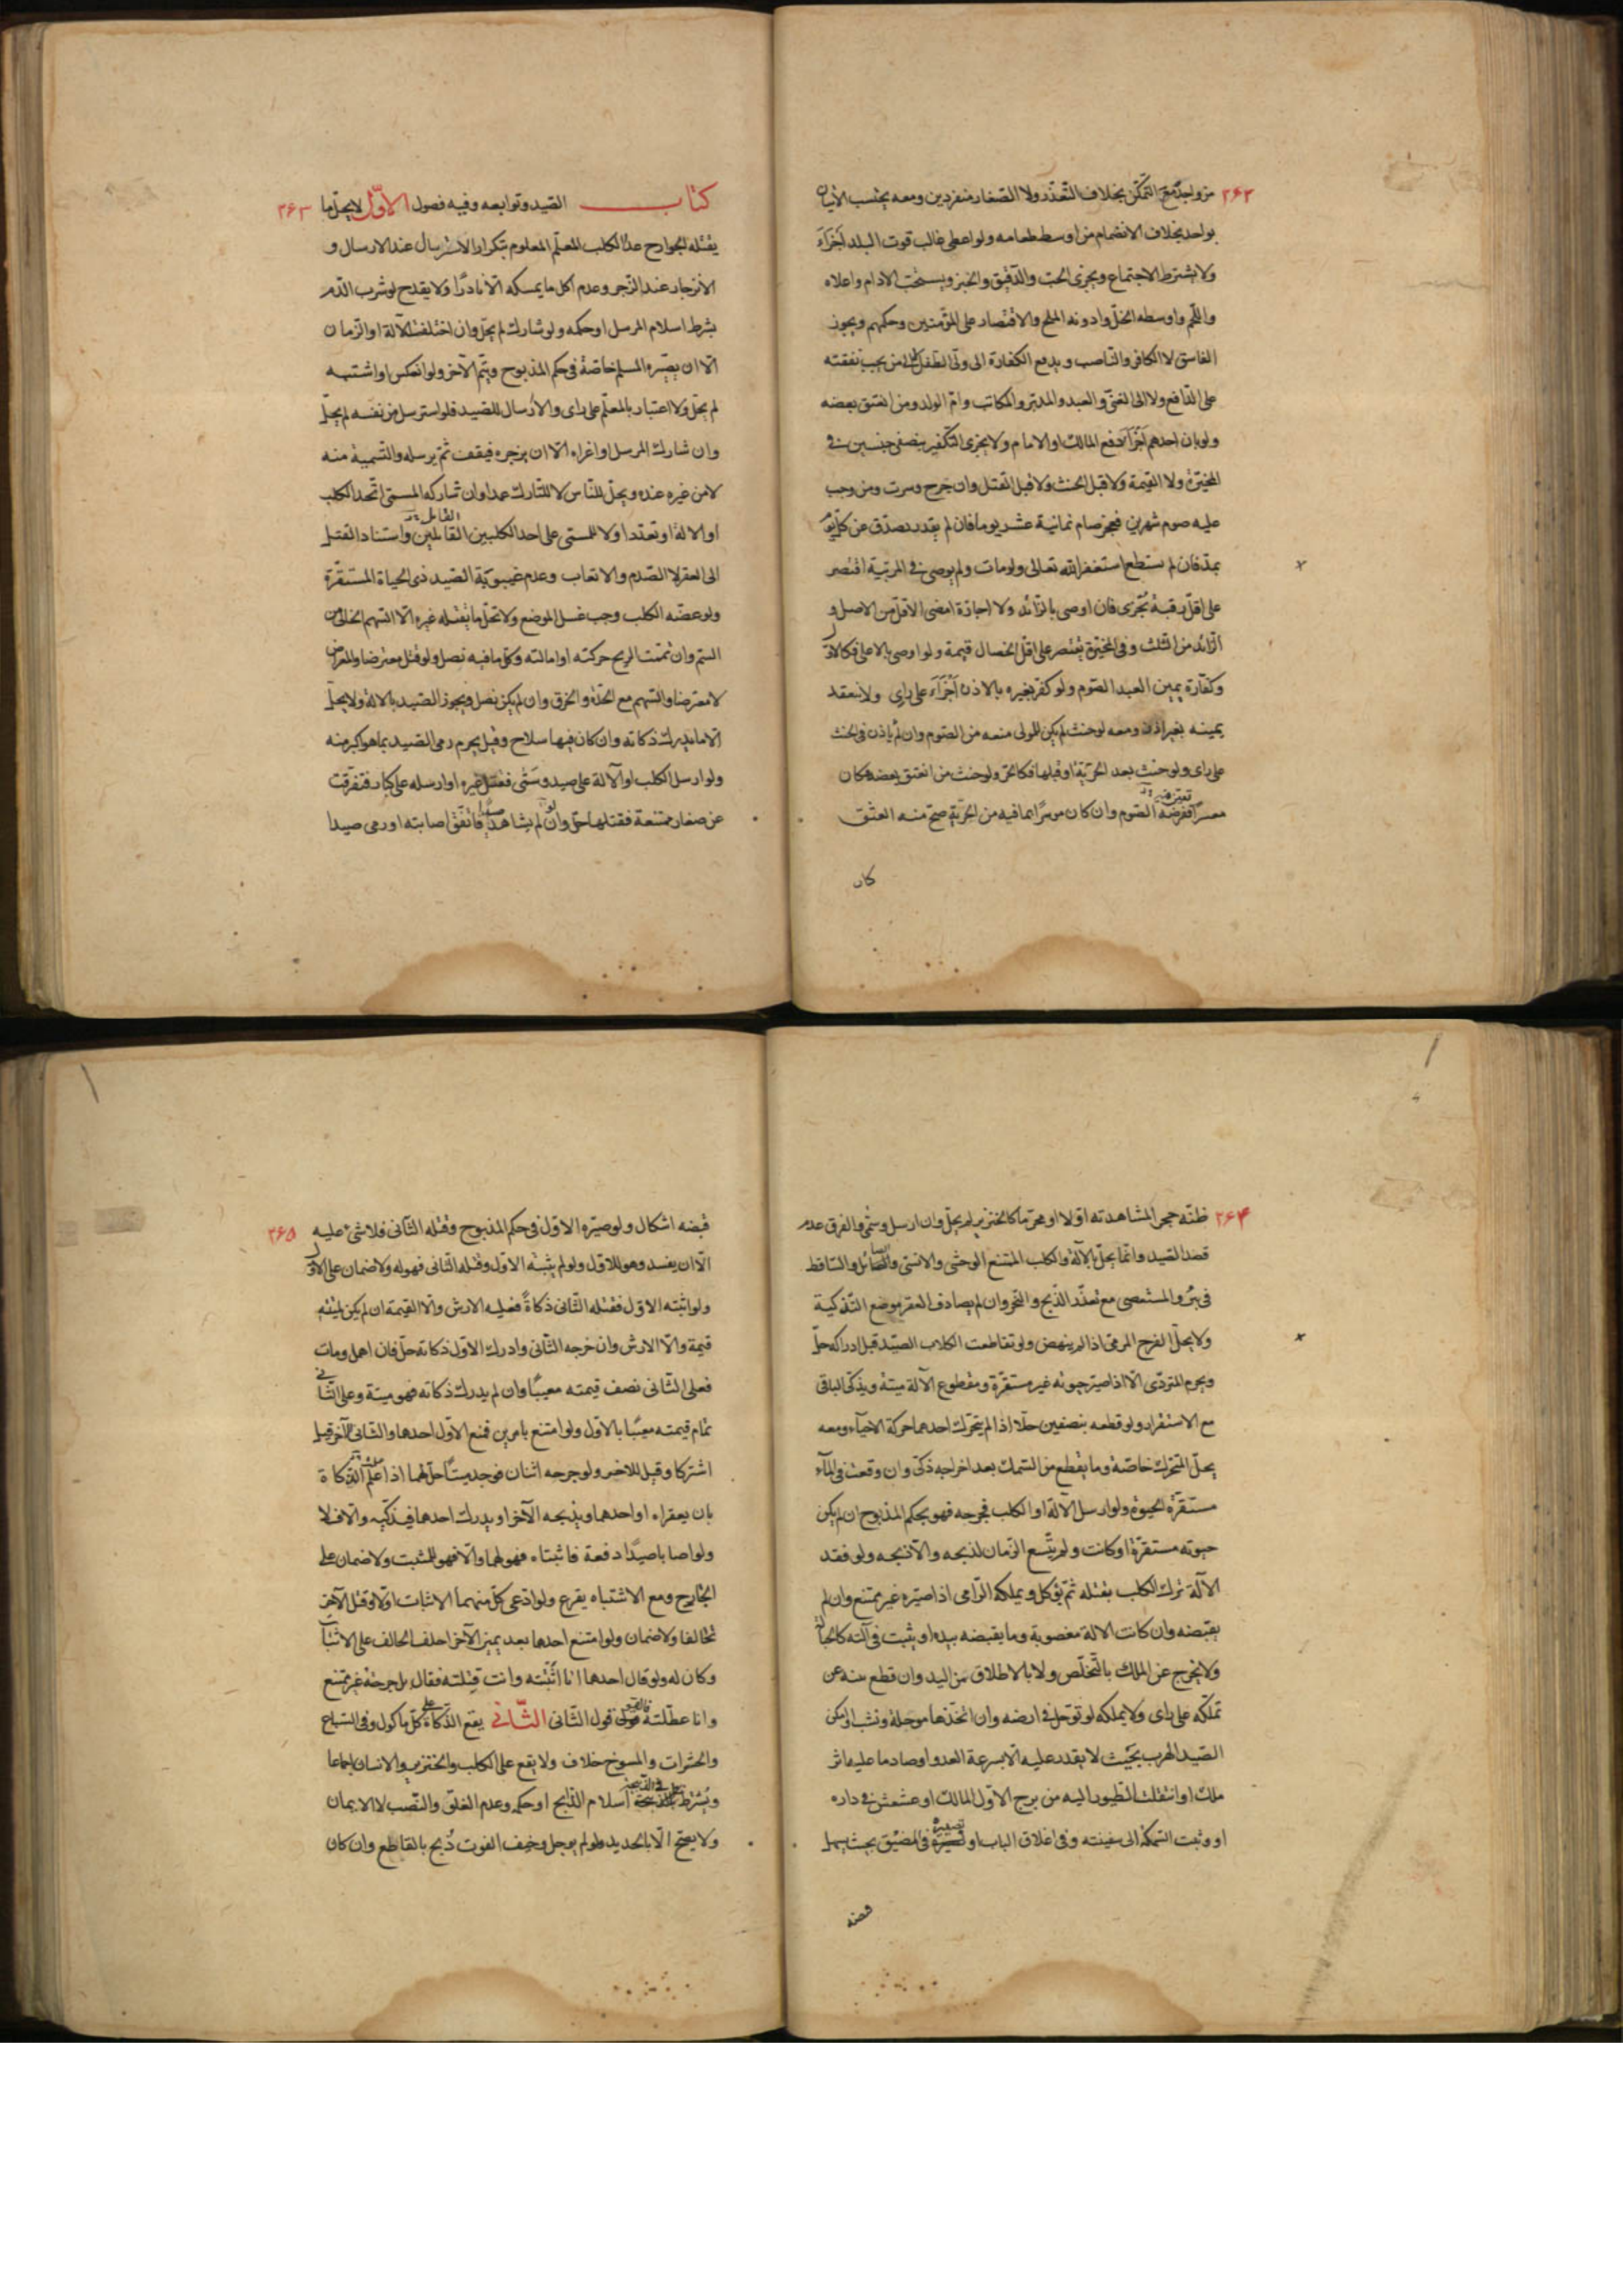 ٢۶٢
من واحد مع التمكّن بخلاف التعذّر ولا الصغار منفردين ومعه يحتسب الاثنان
بواحد بخلاف الانضمام من اوسط طعامه ولو اعطى غالب قوت البلد اَجزَاَءَ
ولا يشترط الاجتماع ويجزى الحبّ والدّقيق والخبز ويستحبّ الادام واعلاه
واللّحم واوسطه الخلّ وادونه الملح والاقتصار على المؤمنين وحكمهم ويجوز
الفاسق لا الكافر والناصب ويدفع الكفارة الى ولىّ الطفل لا لمن يجب نفقته
على الدّافع ولا الى الغنىّ والعبد والمدبّر والمكاتب وامّ الولد ومن انعتق بعضه
ولو بان احدهم اَجزَاَ لا دفع المالك او الامام ولا يجزى التكفير بنصفى جنسين فى
المخيّرة ولا القيمة ولا قبل الحنث ولا قبل القتل وان جرح وسرت ومن وجب
عليه صوم شهرين فعجز صام ثمانية عشر يوما فان لم يقدر تصدّق عن كلّ يوم
بمدّ فان لم يستطع استغفر الله تعالى ولو مات ولم يوص فى المرتبة اقتصر
على اقلّ رقبة تجزى فان اوصى بالزائد ولا اجازة امضى الاقلّ من الاصل و
الزائد من الثلث وفى المخيّرة يقتصر على اقلّ الخصال قيمة ولو اوصى بالاعلى فكالاوّل
وكفّارة يمين العبد الصّوم ولو كفّر بغيره بالاذن اَجزَاَءَ على راى ولا ينعقد
يمينه بغير اذن ومعه لو حنث لم يكن للمولى منعه من الصّوم وان لم يأذن فى الحنث
على راى ولو حنث بعد الحرّية او قبلها فكالحرّ ولو حنث من انعتق بعضه وكان
معسرًا ففرضه الصّوم وان كان موسرًا بما فيه من الحرّية صحّ منه العتق
كتاب الصّيد وتوابعه وفيه فصول الاوّل لا يحلّ ما ٢۶٣
يقتله الجوارح عدا الكلب المعلّم المعلوم بتكرار الاسترسال عند الارسال و
الانزجار عند الزّجر وعدم اكل ما يمسكه الّا نادرًا ولا يقدح لو شرب الدّم
بشرط اسلام المرسل او حكمه ولو شارك لم يحلّ وان اختلفت الآلة او الزّمان
الّا ان يصيّره المسلم خاصّة فى حكم المذبوح ويتمّ الآخر ولو انعكس او اشتبه
لم يحلّ ولا اعتبار بالمعلّم على راى والارسال للصّيد فلو استرسل من نفسه لم يحلّ
وان شارك المرسل او اغراه الّا ان يزجره فيقف ثمّ يرسله والتسمية منه
لا من غيره عنده ويحلّ للنّاس لا للتارك عمدا وان شاركه المسمّى اتّحد الكلب
او الالة او تعدّدا ولا للمسمّى على احد الكلبين القاتلين واستناد القتل
الى العقر لا الصّدم والاتعاب وعدم غيبوبة الصّيد ذى الحياة المستقرّة
ولو عضّه الكلب وجب غسل الموضع ولا تحلّ ما يقتله غيره الّا السّهم الخالى من
السّم وان تمّمت الريح حركته او امالته وكلّ ما فيه نصل ولو قتل معترضا والمعراض
لا معترضا والسّهم مع الحدّة والخرق وان لم يكن نصل ويجوز الصّيد بالالة ولا يحلّ
الّا ما يدرك ذكاته وان كان فيها سلاح وقيل يحرم رمى الصّيد بما هو اكبر منه
ولو ارسل الكلب او الآلة على صيد وسمّى فقتل غيره او ارسله على كبار فتفرّقت
عن صغار ممتنعة فقتلها حلّ وان لم يشاهد صيدا فاتّفق اصابته او رمى صيدا
٢۶۴
ظنّه حجر المشاهدته اوّلا او محرّما كالخنزير لم يحلّ وان ارسل وسمّى والفرق عدم
قصد الصّيد وانّما يحلّ بالآلة والكلب الممتنع الوحشى والانسى والصّائل والسّاقط
فى بئر والمستعصى مع تعذّر الذّبح والنّحر وان لم يصادف العقر موضع التّذكية
ولا يحلّ الفرخ المرمىّ اذا لم ينهض ولو تقاطعت الكلاب الصّيد قبل ادراكه حلّ
ويحرم المتردّى الّا اذا صيّر حيوته غير مستقرّة ومقطوع الآلة ميتة ويذكّى الباقى
مع الاستقرار ولو قطعه بنصفين حلّا اذا لم يتحرّك احدهما حركة الاحياء ومعه
يحلّ المتحرّك خاصّة وما يقطع من السّمك بعد اخراجه ذكىّ وان وقعت فى المآء
مستقرّة الحيوة ولو ارسل الآلة او الكلب فجرحه فهو بحكم المذبوح ان لم يكن
حيوته مستقرّة او كانت ولم يتّسع الزّمان لذبحه والّا ذبحه ولو فقد
الآلة ترك الكلب يقتله ثمّ يؤكل ويملكه الرّامى اذا صيّره غير ممتنع وان لم
يقبضه وان كانت الالة مغصوبة وما يقبضه بيده او يثبت فى آلته كالحبالة
ولا يخرج عن الملك بالتّخلّص ولا بالاطلاق من اليد وان قطع نيّه عن
تملّكه على راى ولا يملكه لو توحّل فى ارضه وان اتّخذها موحلة ونشب او لم يكن
الصّيد الهرب بحيث لا يقدر عليه الّا بسرعة العدو او صاد ما عليه اثر
ملك او انتقلت الطّيور اليه من برج الاوّل المالك او عشعش فى داره
او وثبت السّمكة الى سفينته وفى اغلاق الباب او تصييره فى المضيق بحيث يسهل
قبضه
قبضه اشكال ولو صيّره الاوّل فى حكم المذبوح وقتله الثّانى فلا شئ عليه ٢۶۵
الّا ان يفسد وهو للاوّل ولو لم يثبته الاوّل وقتله الثّانى فهو له ولا ضمان على الاوّل
ولو اثبته الاوّل فقتله الثّانى ذكاةً فعليه الارش والّا القيمة ان لم يكن لميّته
قيمة والّا الارش وان جرحه الثّانى وادرك الاوّل ذكاته حلّ فان اهمل ومات
فعلى الثّانى نصف قيمته معيبًا وان لم يدرك ذكاته فهو ميتة وعلى الثّانى
تمام قيمته معيبًا بالاوّل ولو امتنع بامرين فمنع الاوّل احدهما والثانى الآخر قيل
اشتركا وقيل للاخير ولو جرحه اثنان فوجد ميتًا حلّ لهما اذا علم الذّكاة
بان يعقراه او احدهما ويذبحه الآخر او يدرك احدهما فيذكّيه والّا فلا
ولو اصابا صيدًا دفعة فاثبتاه فهو لهما والّا فهو للمثبت ولا ضمان على
الجارح ومع الاشتباه يقرع ولو ادّعى كلّ منهما الاثبات اوّلا وقتل الآخر
تحالفا ولا ضمان ولو امتنع احدهما بعد يمين الآخر احلف الحالف على الاثبات
وكان له ولو قال احدهما انا اثبتّه وانت قتلته فقال بل جرحته غير ممتنع
وانا عطّلته فالقول قول الثّانى الثّانى يقع الذّكاة على كلّ ماكول وفى السّباع
والحشرات والمسوخ خلاف ولا يقع على الكلب والخنزير والانسان اجماعا
ويُشترط فى الذّبيحة اسلام الذّابح او حكمه وعدم الغلوّ والنّصب لا الايمان
ولا يصحّ الّا بالحديد ولو لم يوجل وخيف الفوت ذُبح بالقاطع وان كان